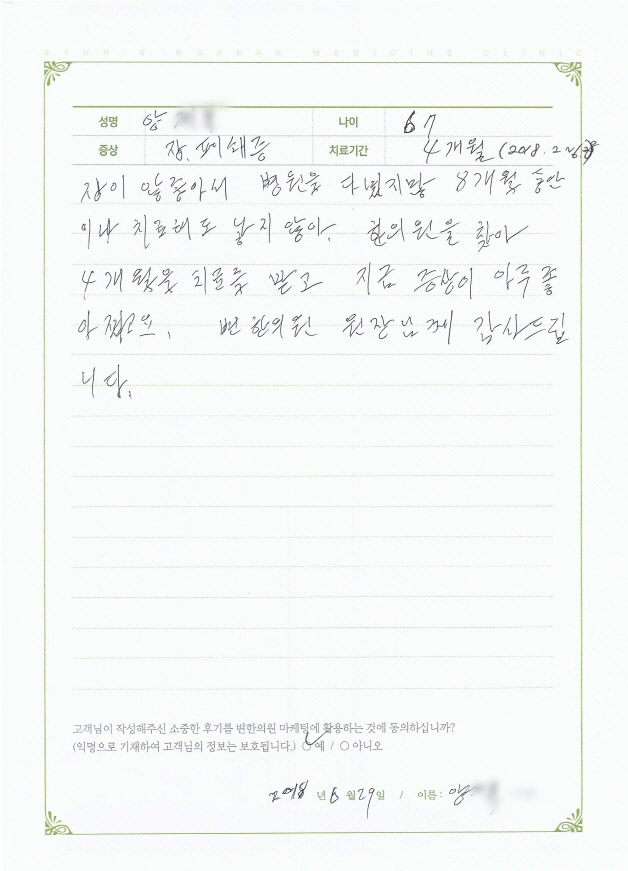 BYUN'S KOREAN MEDICINE CLINIC
성명 양 나이 67
증상 장.폐쇄증 치료기간 4개월 (2018. 2
장이 않좋아서 병원을 다녔지만 8개월 동안
이나 치료해도 낳지 않아. 한의원을 찾아
4개월을 치료를 받고 지금 증상이 아주 좋
아졌고요. 변한의원 원장님께 감사드립
니다.
고객님이 작성해주신 소중한 후기를 변한의원 마케팅에 활용하는 것에 동의하십니까?
(익명으로 기재하여 고객님의 정보는 보호됩니다.) ○ 예 / ○ 아니오
2018 년 6 월 29 일 / 이름 : 양